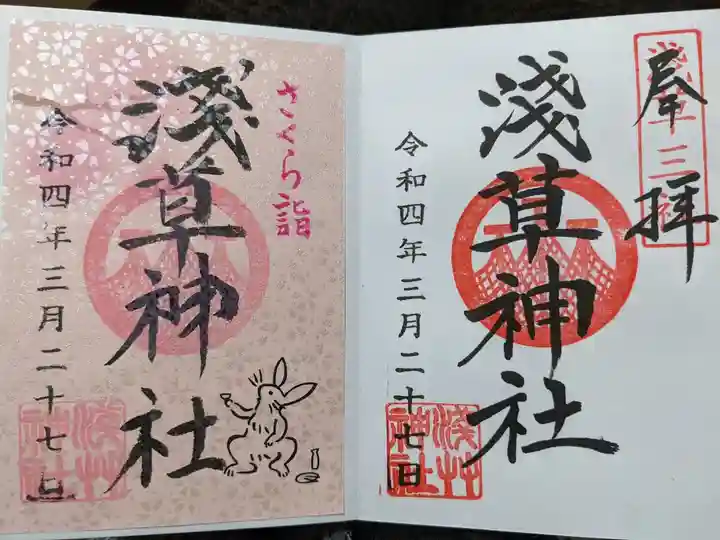 奉拝
淺草三社
淺草神社
令和四年三月二十七日
淺草神社
さくら詣
淺草神社
令和四年三月二十七日
淺草神社